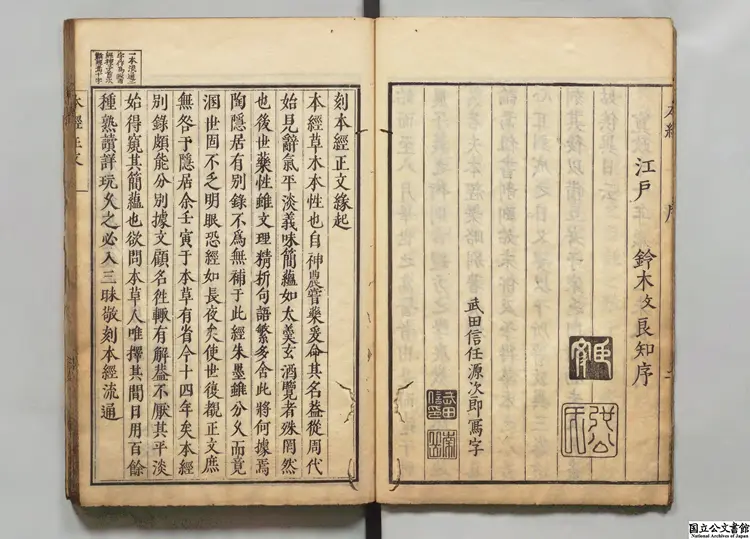 江戸 鈴木文良知序
武田信任源次郎寫字
武田
信印
本經 序
刻本經正文緣起
本經草木本性也自神農嘗藥爰命其名蓋從周代
始見辭氣平淡義味簡蘊如太羹玄酒覽者殊罔然
也後世藥性雖文理精折句語繁多舍此將何據焉
陶隱居有別錄不爲無補于此經朱墨雖分久而竟
溷世固不乏明眼恐經如長夜矣使世復覩正文庶
無咎于隱居余壬寅于本草有省今十四年矣本經
別錄頗能分別據文顧名徃輒有解蓋不厭其平淡
始得窺其簡蘊也欲問本草人唯擇其間日用百餘
種熟讀詳玩久之必入三昧敬刻本經流通
本經正文
國立公文書館
National Archives of Japan